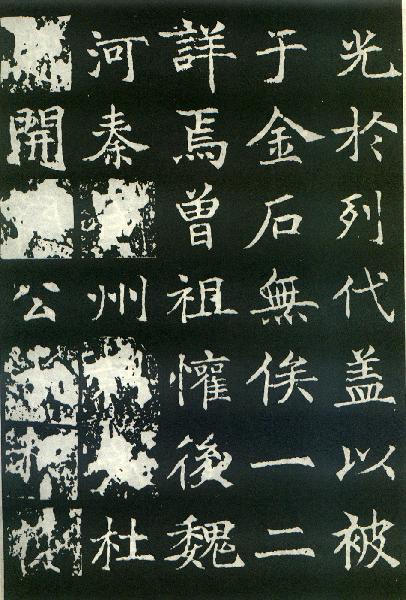 光於列代盖以被
于金石無俟一二
詳焉曾祖懽後魏
河秦州杜
開公